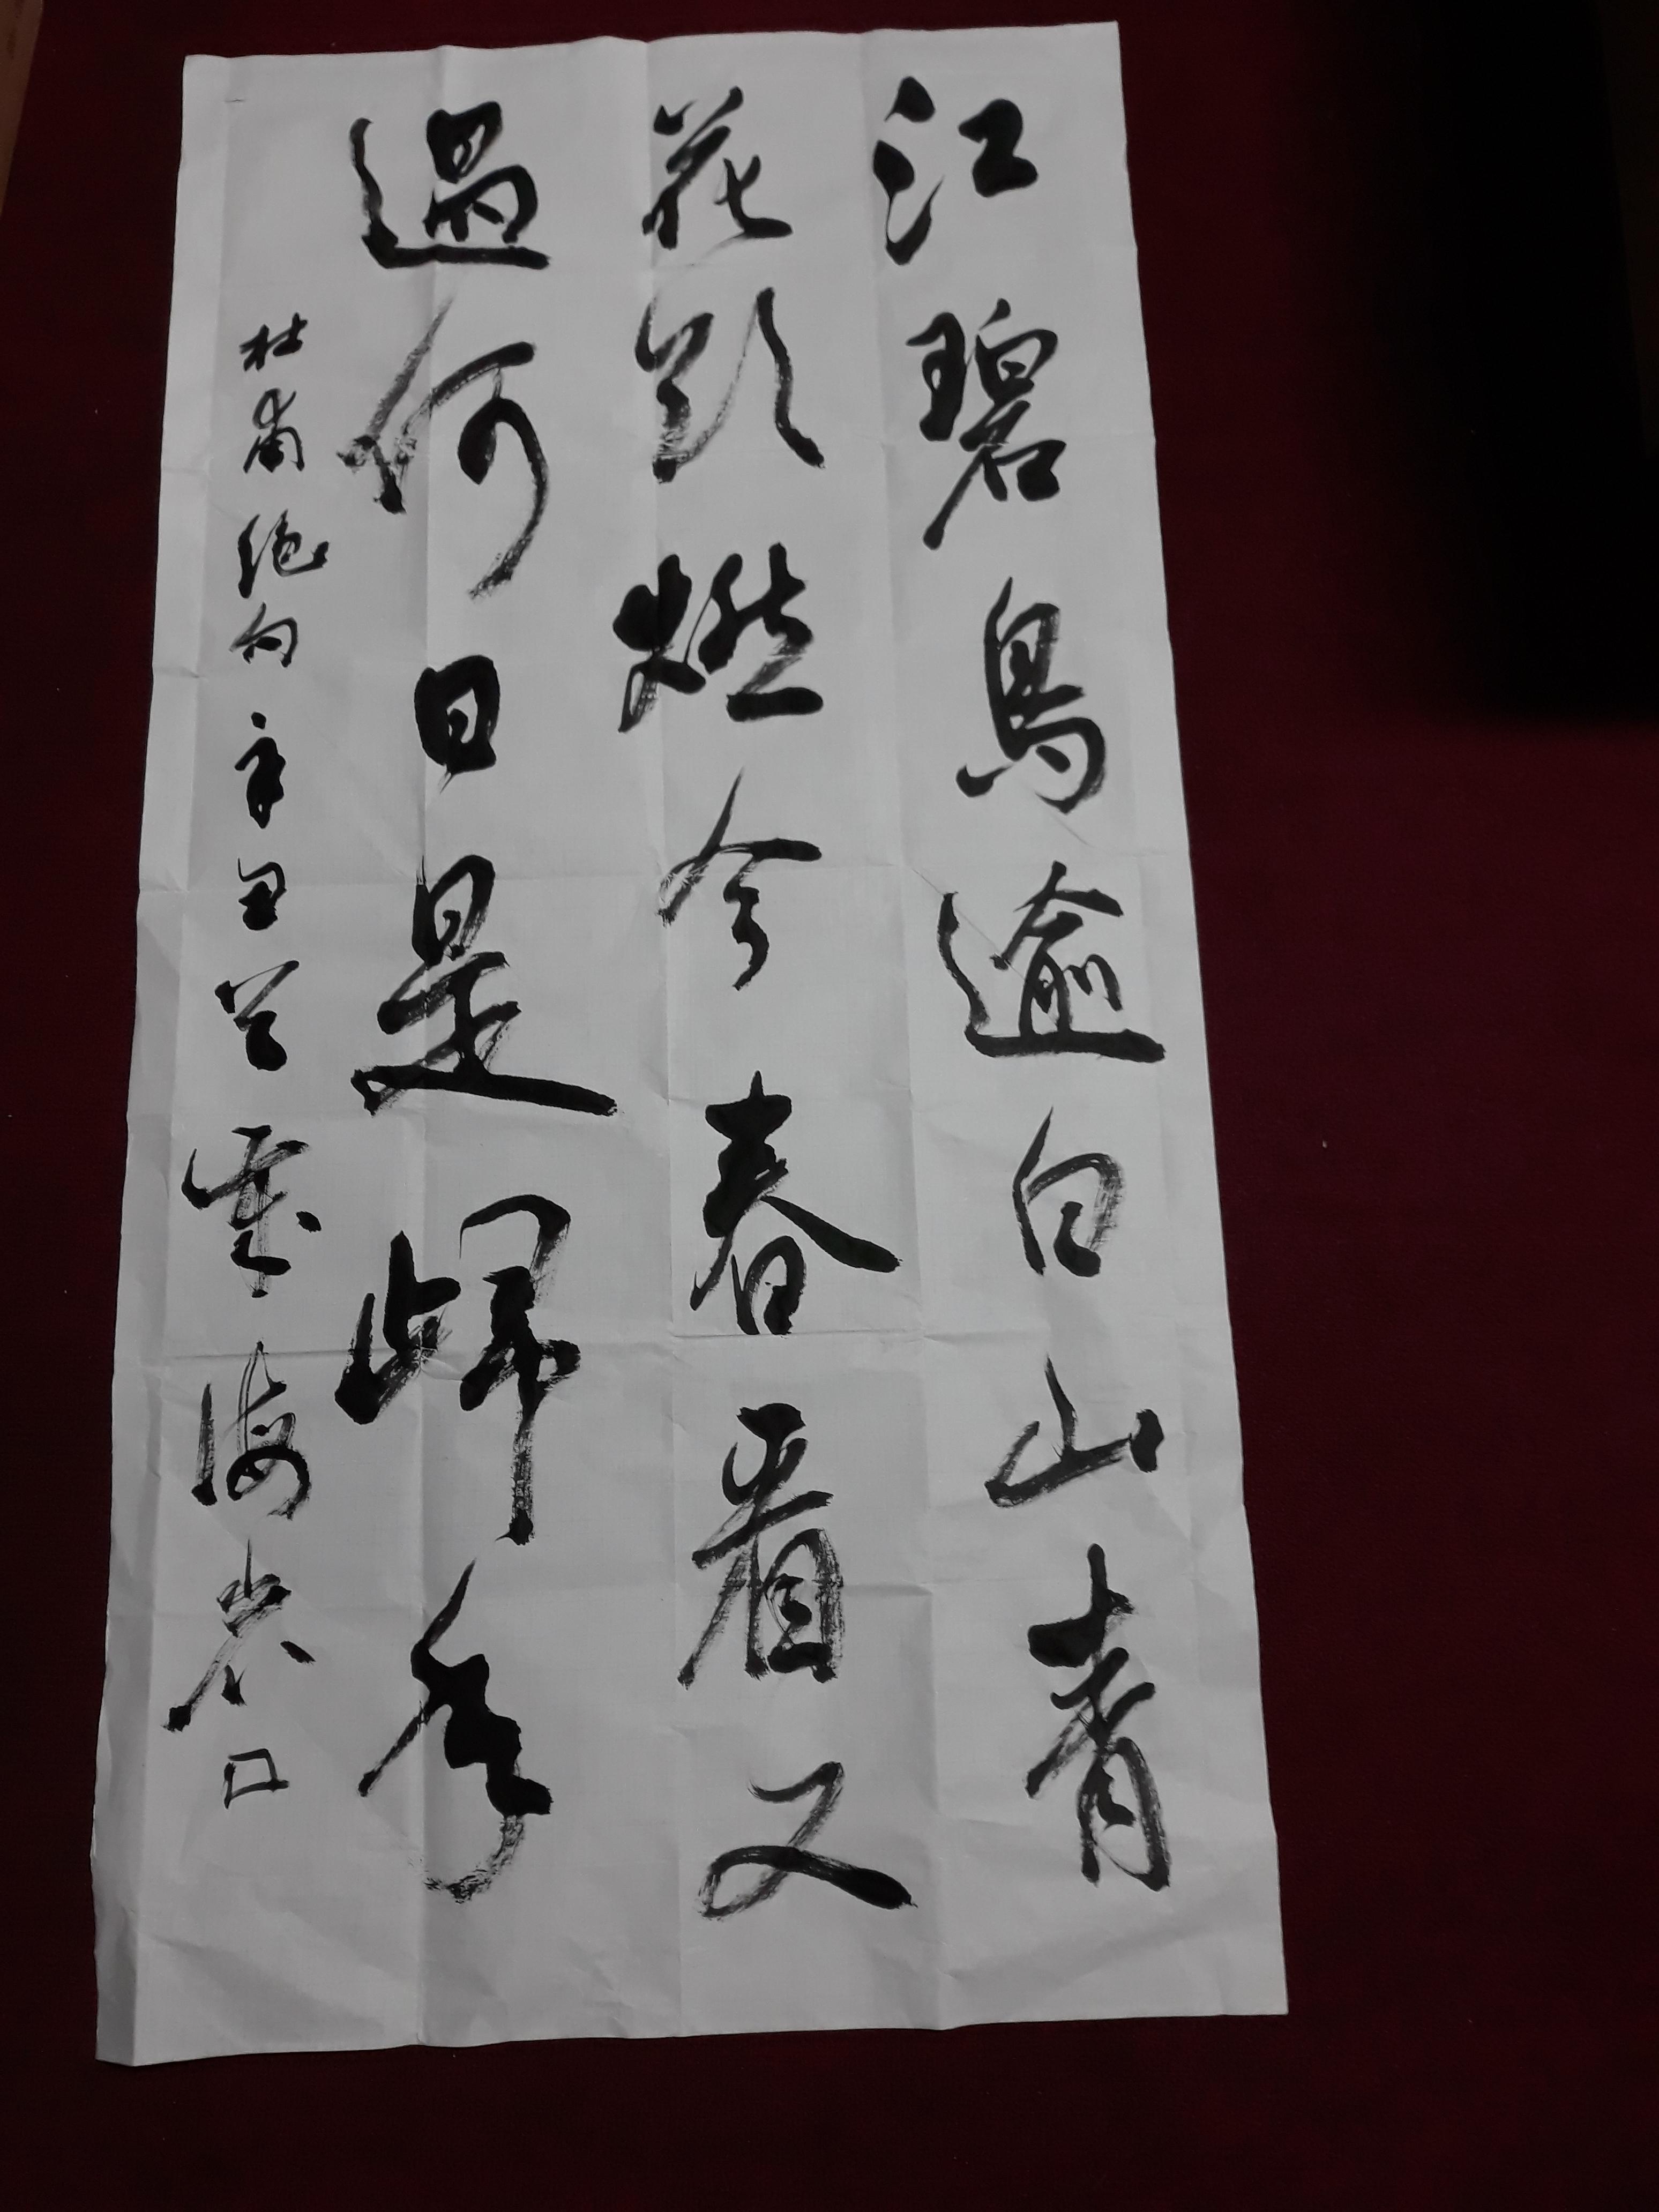 江碧鳥逾白山青
花欲燃今春看又
過何日是歸年
杜甫絕句辛丑